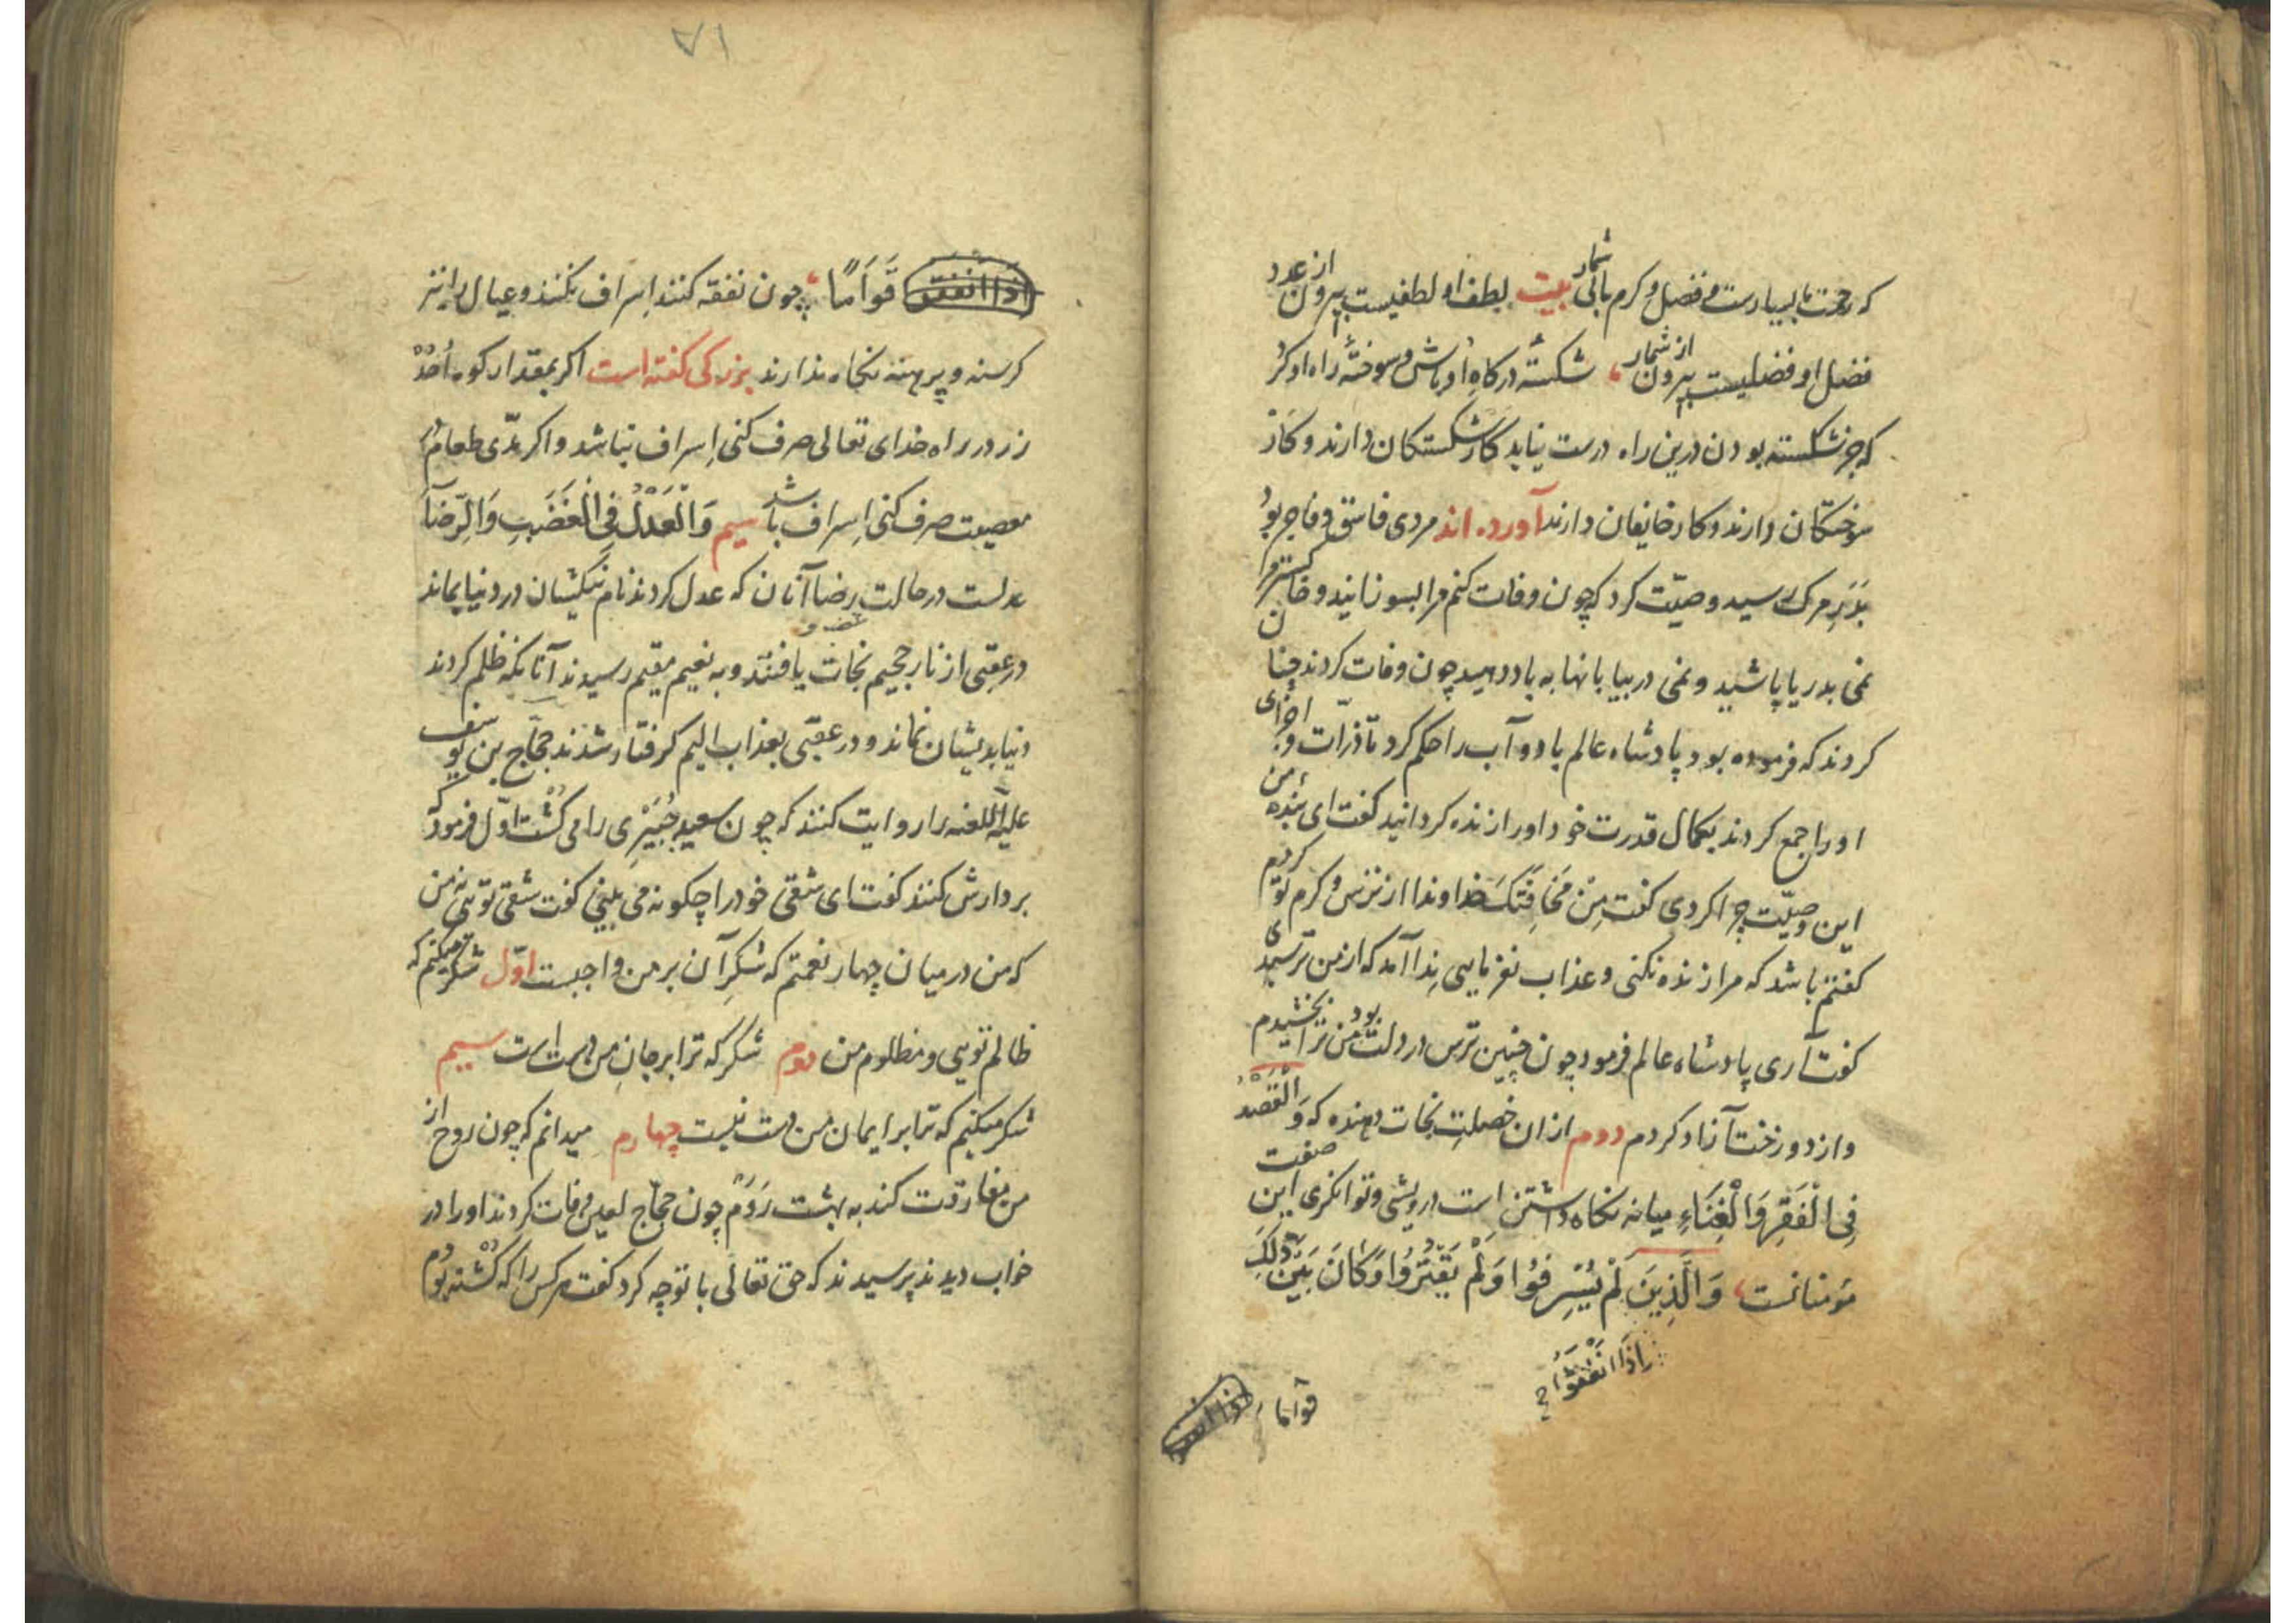 که رحمت ما بسیارست و فضل و کرم ما بی شمار بیت لطف او لطفیست بیرون از عدد
فضل او فضلیست بیرون از شمار شکستهٔ درگاه او باش و سوختهٔ راه او گرد
که جز شکسته بودن درین راه درست نیاید کار شکستگان دارند و کار
سوختگان دارند و کار خایفان دارند آورده اند مردی فاسق و فاجر بود
مرگ رسید وصیّت کرد که چون وفات کنم مرا بسوزانید و خاکستر مرا
نمی بدریا پاشید و نمی در بیابانها به باد دهید چون وفات کردند چنان
کردند که فرموده بود پادشاه عالم باد و آب را حکم کرد تا ذرّات و اجزای
او را جمع کردند بکمال قدرت خود او را زنده کردانید کفت ای بندهٔ من
این وصیّت چرا کردی کفت مِنْ مَخَافَتِكَ خداوندا از ترس و کرم تو کردم
کفتم باشد که مرا زنده نکنی و عذاب نفرمایی ندا آمد که از من ترسیدی
کفت آری پادشاه عالم فرمود چون چنین ترس در دلت بود من ترا بخشیدم
و از دوزخت آزاد کردم دوم از ان خصلت نجات دهنده که وَالْقَصْدُ
فِی الْفَقِرِ وَالْغِنَاءِ میانه نکاه داشتن است درویشی و توانکری این صفت
مؤمنانست وَالَّذِینَ لَمْ یُسْرِفُوا وَلَمْ یَقْتُرُوا وَكَانَ بَیْنَ ذٰلِكَ
اِذَا اَنْفَقُوا
قواما
۷۱
قَوَامًا چون نفقه کنند اسراف نکنند و عیال را نیز
کرسنه و برهنه نکاه ندارند بزرکی کفته است اکر بمقدار کوه اُحُدْ
زر در راه خدای تعالی صرف کنی اِسراف نباشد و اکر مدّی طعام در
معصیت صرف کنی اِسراف باشد سیم وَالْعَدْلُ فِی الْغَضَبِ وَالرِّضَا
عدلست در حالت رضا و غضب آنان که عدل کردند نام نیکشان در دنیا بماند
در عقبی از نار جحیم نجات یافتند و به نعیم مقیم رسیدند آنانکه ظلم کردند
دنیا بدیشان نماند و در عقبی بعذاب الیم کرفتار شدند حجّاج بن یوسف
علیه اللعنه را روایت کنند که چون سعید جُبَیْرِی را می کُشت اوّل فرمود که
بر دارش کنند کفت ای شقی خود را چکونه می بینی کفت شقی تویی نه من
که من در میان چهار نعمتم که شکرِ آن بر من واجبست اوّل شکر میکنم که
ظالم تویی و مظلوم من دوم شکر که ترا بر جانِ من دست است سیم
شکر میکنم که ترا بر ایمان من دست نیست چهارم میدانم که چون روح از
من مفارقت کند به بهشت رَوَم چون حجّاج لعین وفات کردند او را در
خواب دیدند پرسیدند که حق تعالی با تو چه کرد کفت هر کس را که کُشته بودم